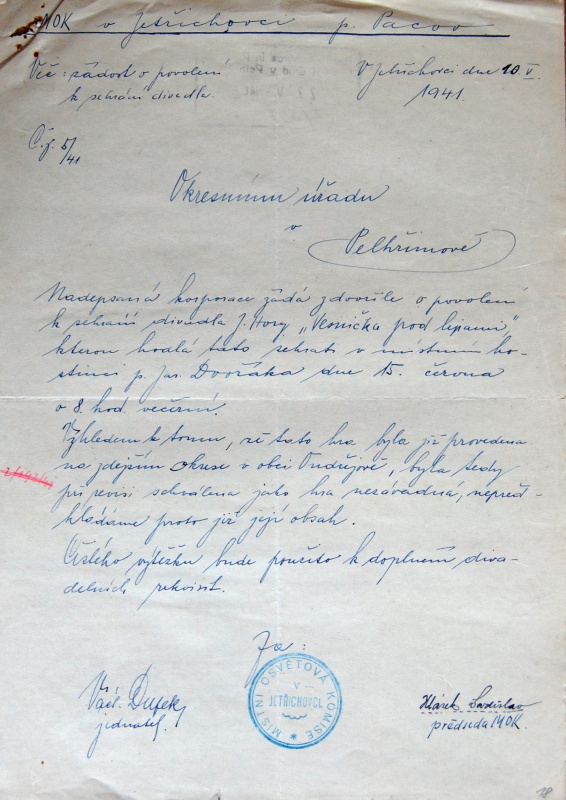 MOK v Jetřichovci p. Pacov
Věc: žádost o povolení
k sehrání divadla.
V Jetřichovci dne 10. V.
1941.
Č.j. 5/41
Okresnímu úřadu
v
Pelhřimově
Nadepsaná korporace žádá zdvořile o povolení
k sehrání divadla J. Hory "Vesnička pod lipami,"
kterou hodlá tato sehrati v místním ho-
stinci p. Jos. Dvořáka dne 15. června
o 8. hod. večerní.
Vzhledem k tomu, že tato hra byla již provedena
na zdejším okrese v obci Ondřejově, byla tedy
při revisi schválena jako hra nezávadná, nepřed-
kládáme proto již její obsah.
Čistého výtěžku bude použito k doplnění diva-
delních rekvisit.
Za:
Václ. Dufek,
jednatel.
MÍSTNÍ OSVĚTOVÁ KOMISE
V
JETŘICHOVCI
Ladislav
předseda MOK.